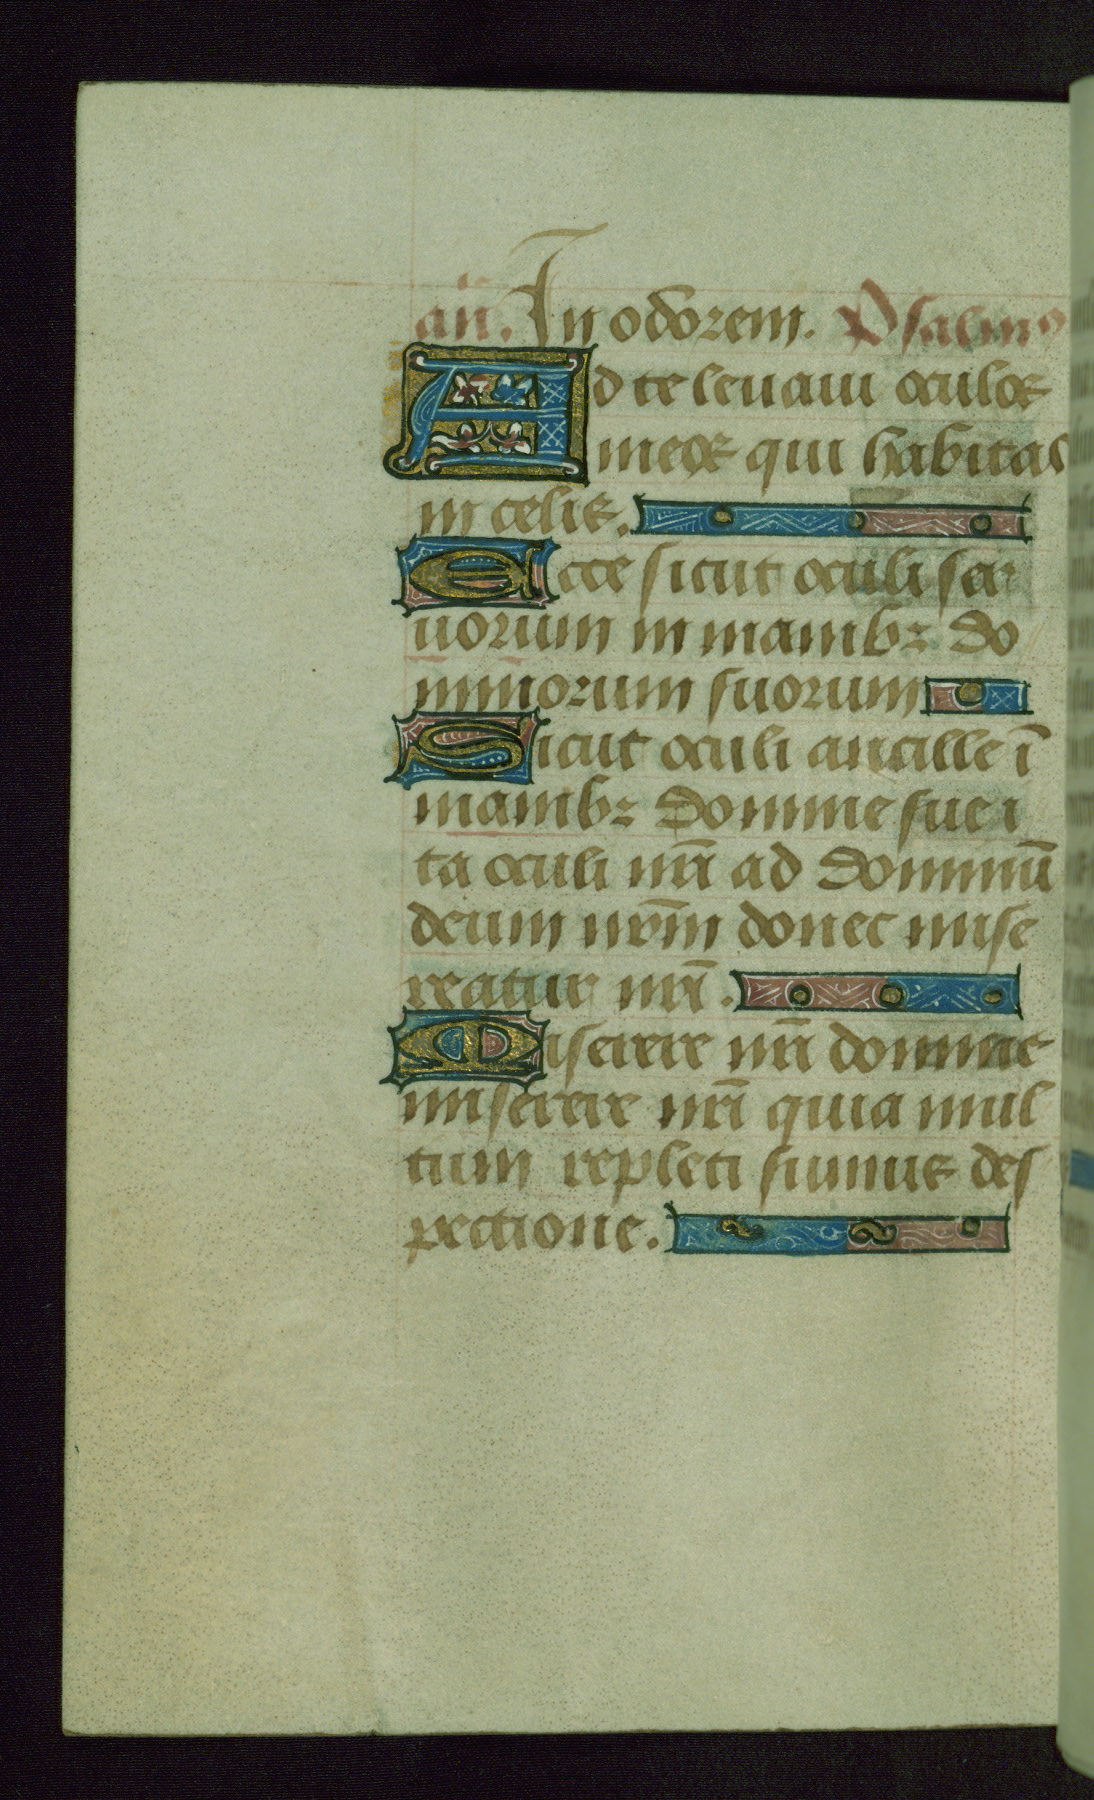 añ. In odorem. Psalmꝰ
Ad te leuaui oculos
meos qui habitas
in celis.
Ecce sicut oculi ser
uorum in manibꝫ do
minorum suorum
Sicut oculi ancille ī
manibꝫ domine sue i
ta oculi nr̄i ad dominū
deum nr̄m donec mise
reatur nr̄i.
Miserere nr̄i domine
miserere nr̄i quia mul
tum repleti sumus des
pectione.